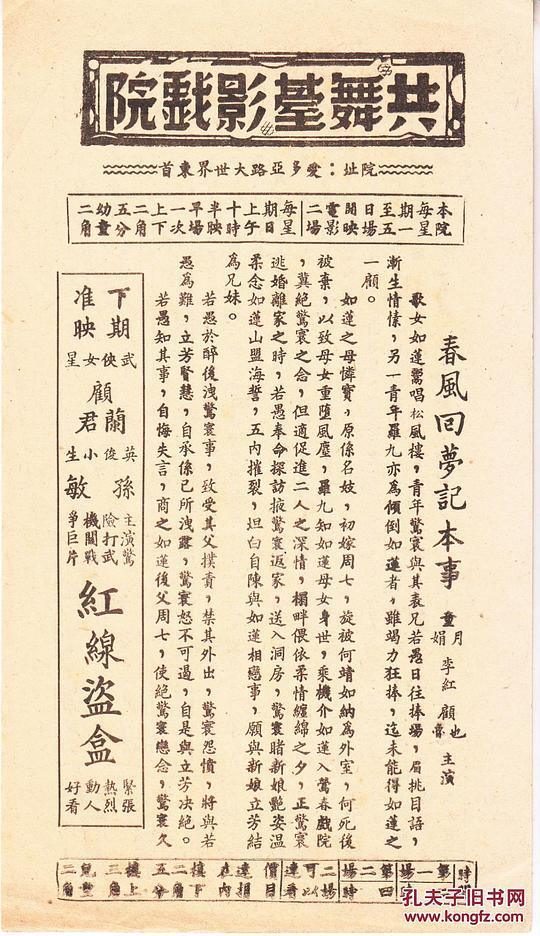 共舞臺影戲院
院址：愛多亞路大世界東首
本院每星期一至五日場開映電影二場
每星期日上午十時半映早場一次上下二角五分幼童二角
春風回夢記本事
童月娟 李紅 顧也魯 主演
歌女如蓮鬻唱松風樓，青年驚寰與其表兄若愚日往捧場，眉挑目語，
漸生情愫，另一青年羅九亦為傾倒如蓮者，雖竭力狂捧，迄未能得如蓮之
一顧。
如蓮之母憐寶，原係名妓，初嫁周七，旋被何靖如納為外室，何死後
被棄，以致母女重墮風塵，羅九知如蓮母女身世，乘機介如蓮入鶯春戲院
，冀絕驚寰之念，但適促進二人之深情，榻畔偎依柔情纏綿之夕，正驚寰
逃婚離家之時，若愚奉命探訪掖驚寰返家，送入洞房，驚寰睹新娘艷姿溫
柔念如蓮山盟海誓，五內摧裂，坦白自陳與如蓮相戀事，願與新娘立芳結
為兄妹。
若愚於醉後洩驚寰事，致受其父撲責，禁其外出，驚寰怨憤，將與若
愚為難，立芳賢慧，自承係已所洩露，驚寰怒不可遏，自是與立芳決絕。
若愚知其事，自悔失言，商之如蓮後父周七，使絕驚寰戀念，驚寰久
下期准映
武俠女星
顧蘭君
英俊小生
孫敏
主演驚險打武機關戰爭巨片
紅線盜盒
緊張熱烈動人好看
樓下二角五分
樓上三角
兒童二角
孔夫子旧书网
www.kongfz.com